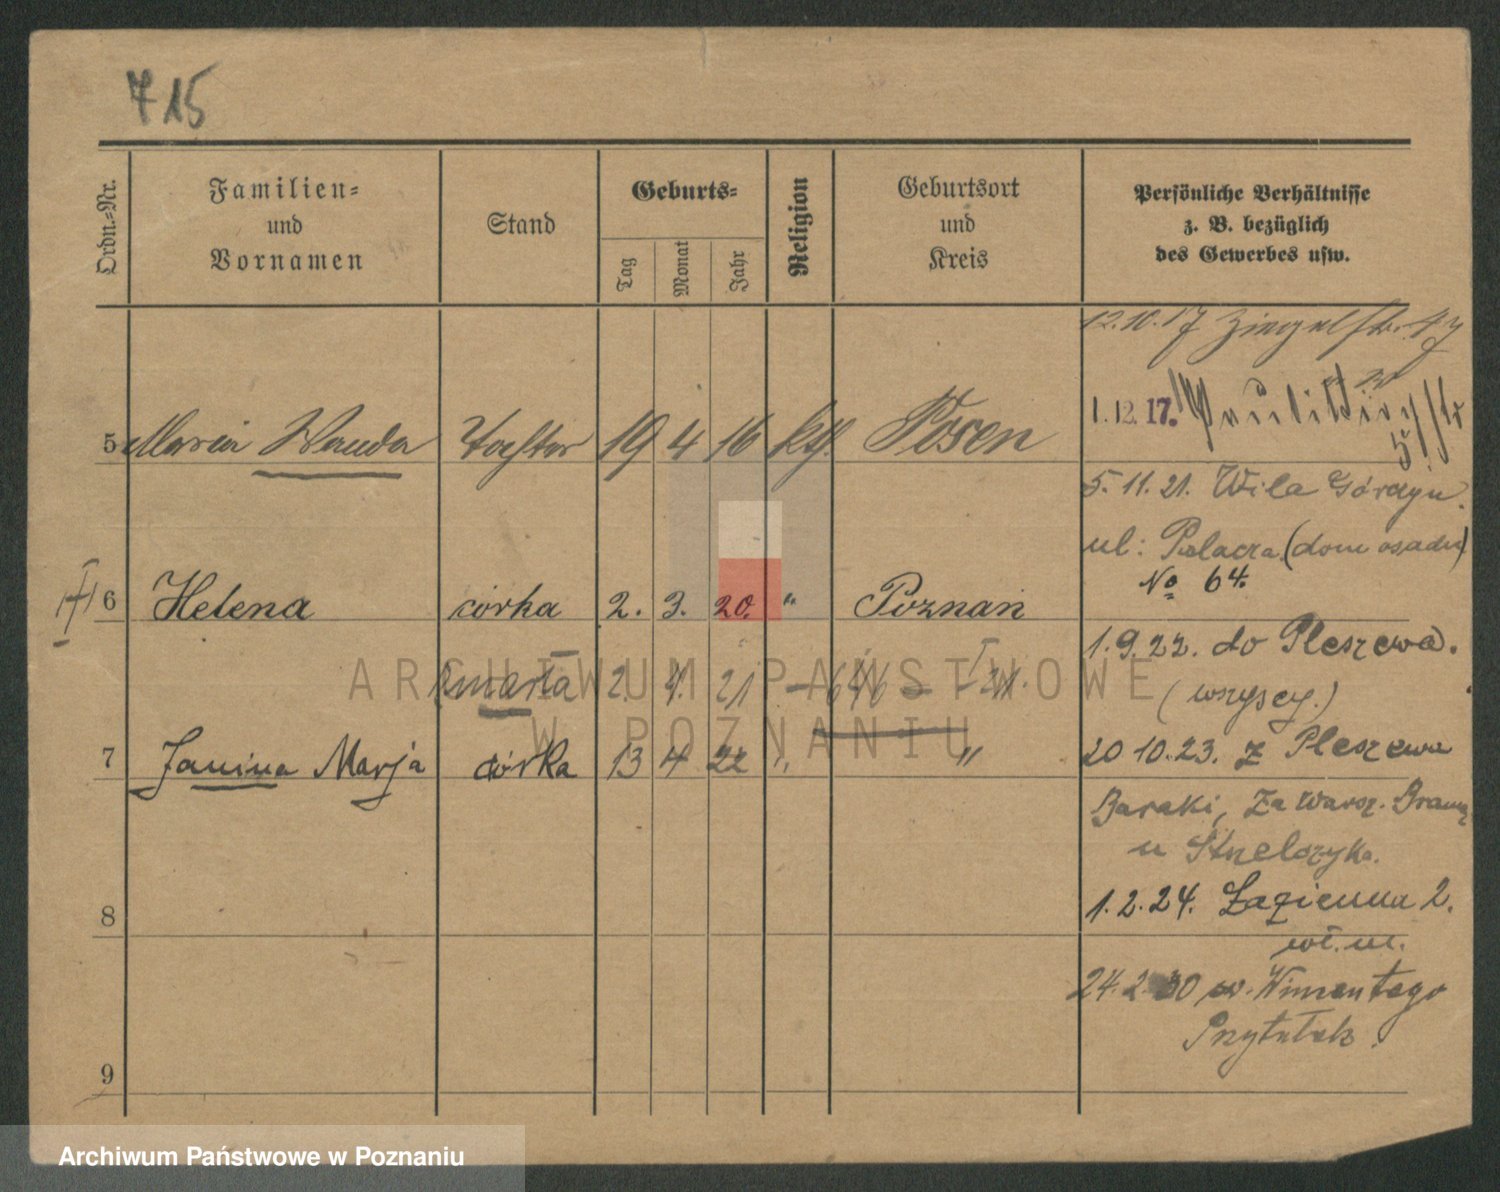 715
Ordn.-Nr.
Familien-
und
Vornamen
Stand
Geburts-
Tag
Monat
Jahr
Religion
Geburtsort
und
Kreis
Persönliche Verhältnisse
z. B. bezüglich
des Gewerbes usw.
12.10.17 Ziegelstr.
5 Maria Wanda Tochter 19 4 16 kth. Posen
1.12.17.
5.11.21. Wila Górczyn
ul: Palacza (dom osadn)
No 64.
6 Helena córka 2. 3. 20. " Poznań
1.9.22. do Pleszewa.
(wszyscy.)
zmarła 2. 4. 21 – 646 –
7 Janina Marja córka 13 4 22 " "
20 10.23. z Pleszewa
Baraki, za Warsz. Bramą
u Strzelczyka.
1.2.24. Łazienna 2.
wł. m.
8
24.2 30
Przytułek.
9
ARCHIWUM PAŃSTWOWE
W POZNANIU
Archiwum Państwowe w Poznaniu